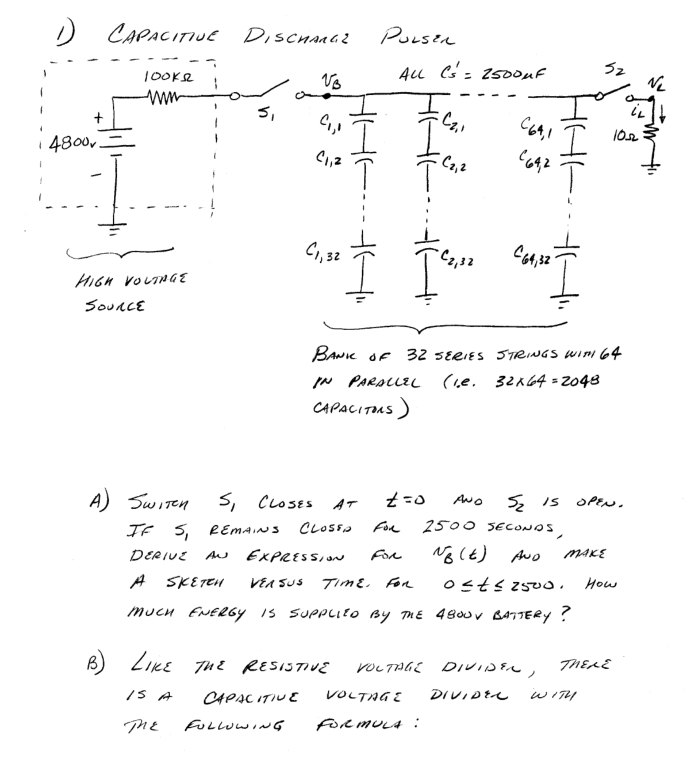 1) CAPACITIVE DISCHARGE PULSER
100KΩ
S1
VB
ALL C's = 2500uF
S2
VL
iL
10Ω
+
4800v
-
C1,1
C2,1
C64,1
C1,2
C2,2
C64,2
C1,32
C2,32
C64,32
HIGH VOLTAGE
SOURCE
BANK OF 32 SERIES STRINGS WITH 64
IN PARALLEL (i.e. 32x64=2048
CAPACITORS)
A) SWITCH S1 CLOSES AT t=0 AND S2 IS OPEN.
IF S1 REMAINS CLOSED FOR 2500 SECONDS,
DERIVE AN EXPRESSION FOR VB(t) AND MAKE
A SKETCH VERSUS TIME. FOR 0≤t≤2500. HOW
MUCH ENERGY IS SUPPLIED BY THE 4800V BATTERY?
B) LIKE THE RESISTIVE VOLTAGE DIVIDER, THERE
IS A CAPACITIVE VOLTAGE DIVIDER WITH
THE FOLLOWING FORMULA: